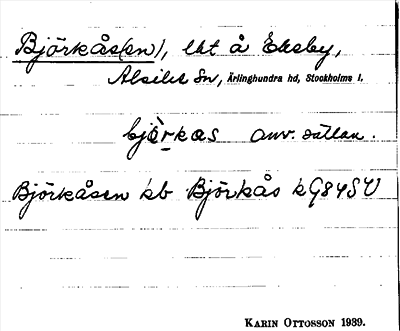 Björkås(en), lht å Eneby,
Alsike sn, Ärlinghundra hd, Stockholms l.
bjö̀rkas anv. sällan.
Björkåsen kb Björkås kG84SV
KARIN OTTOSSON 1939.